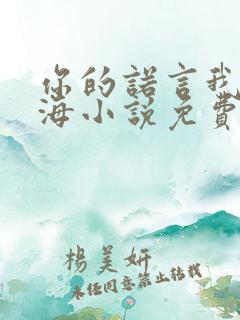 你的諾言我
海小說免費
楊美妍
未经同意禁止转载